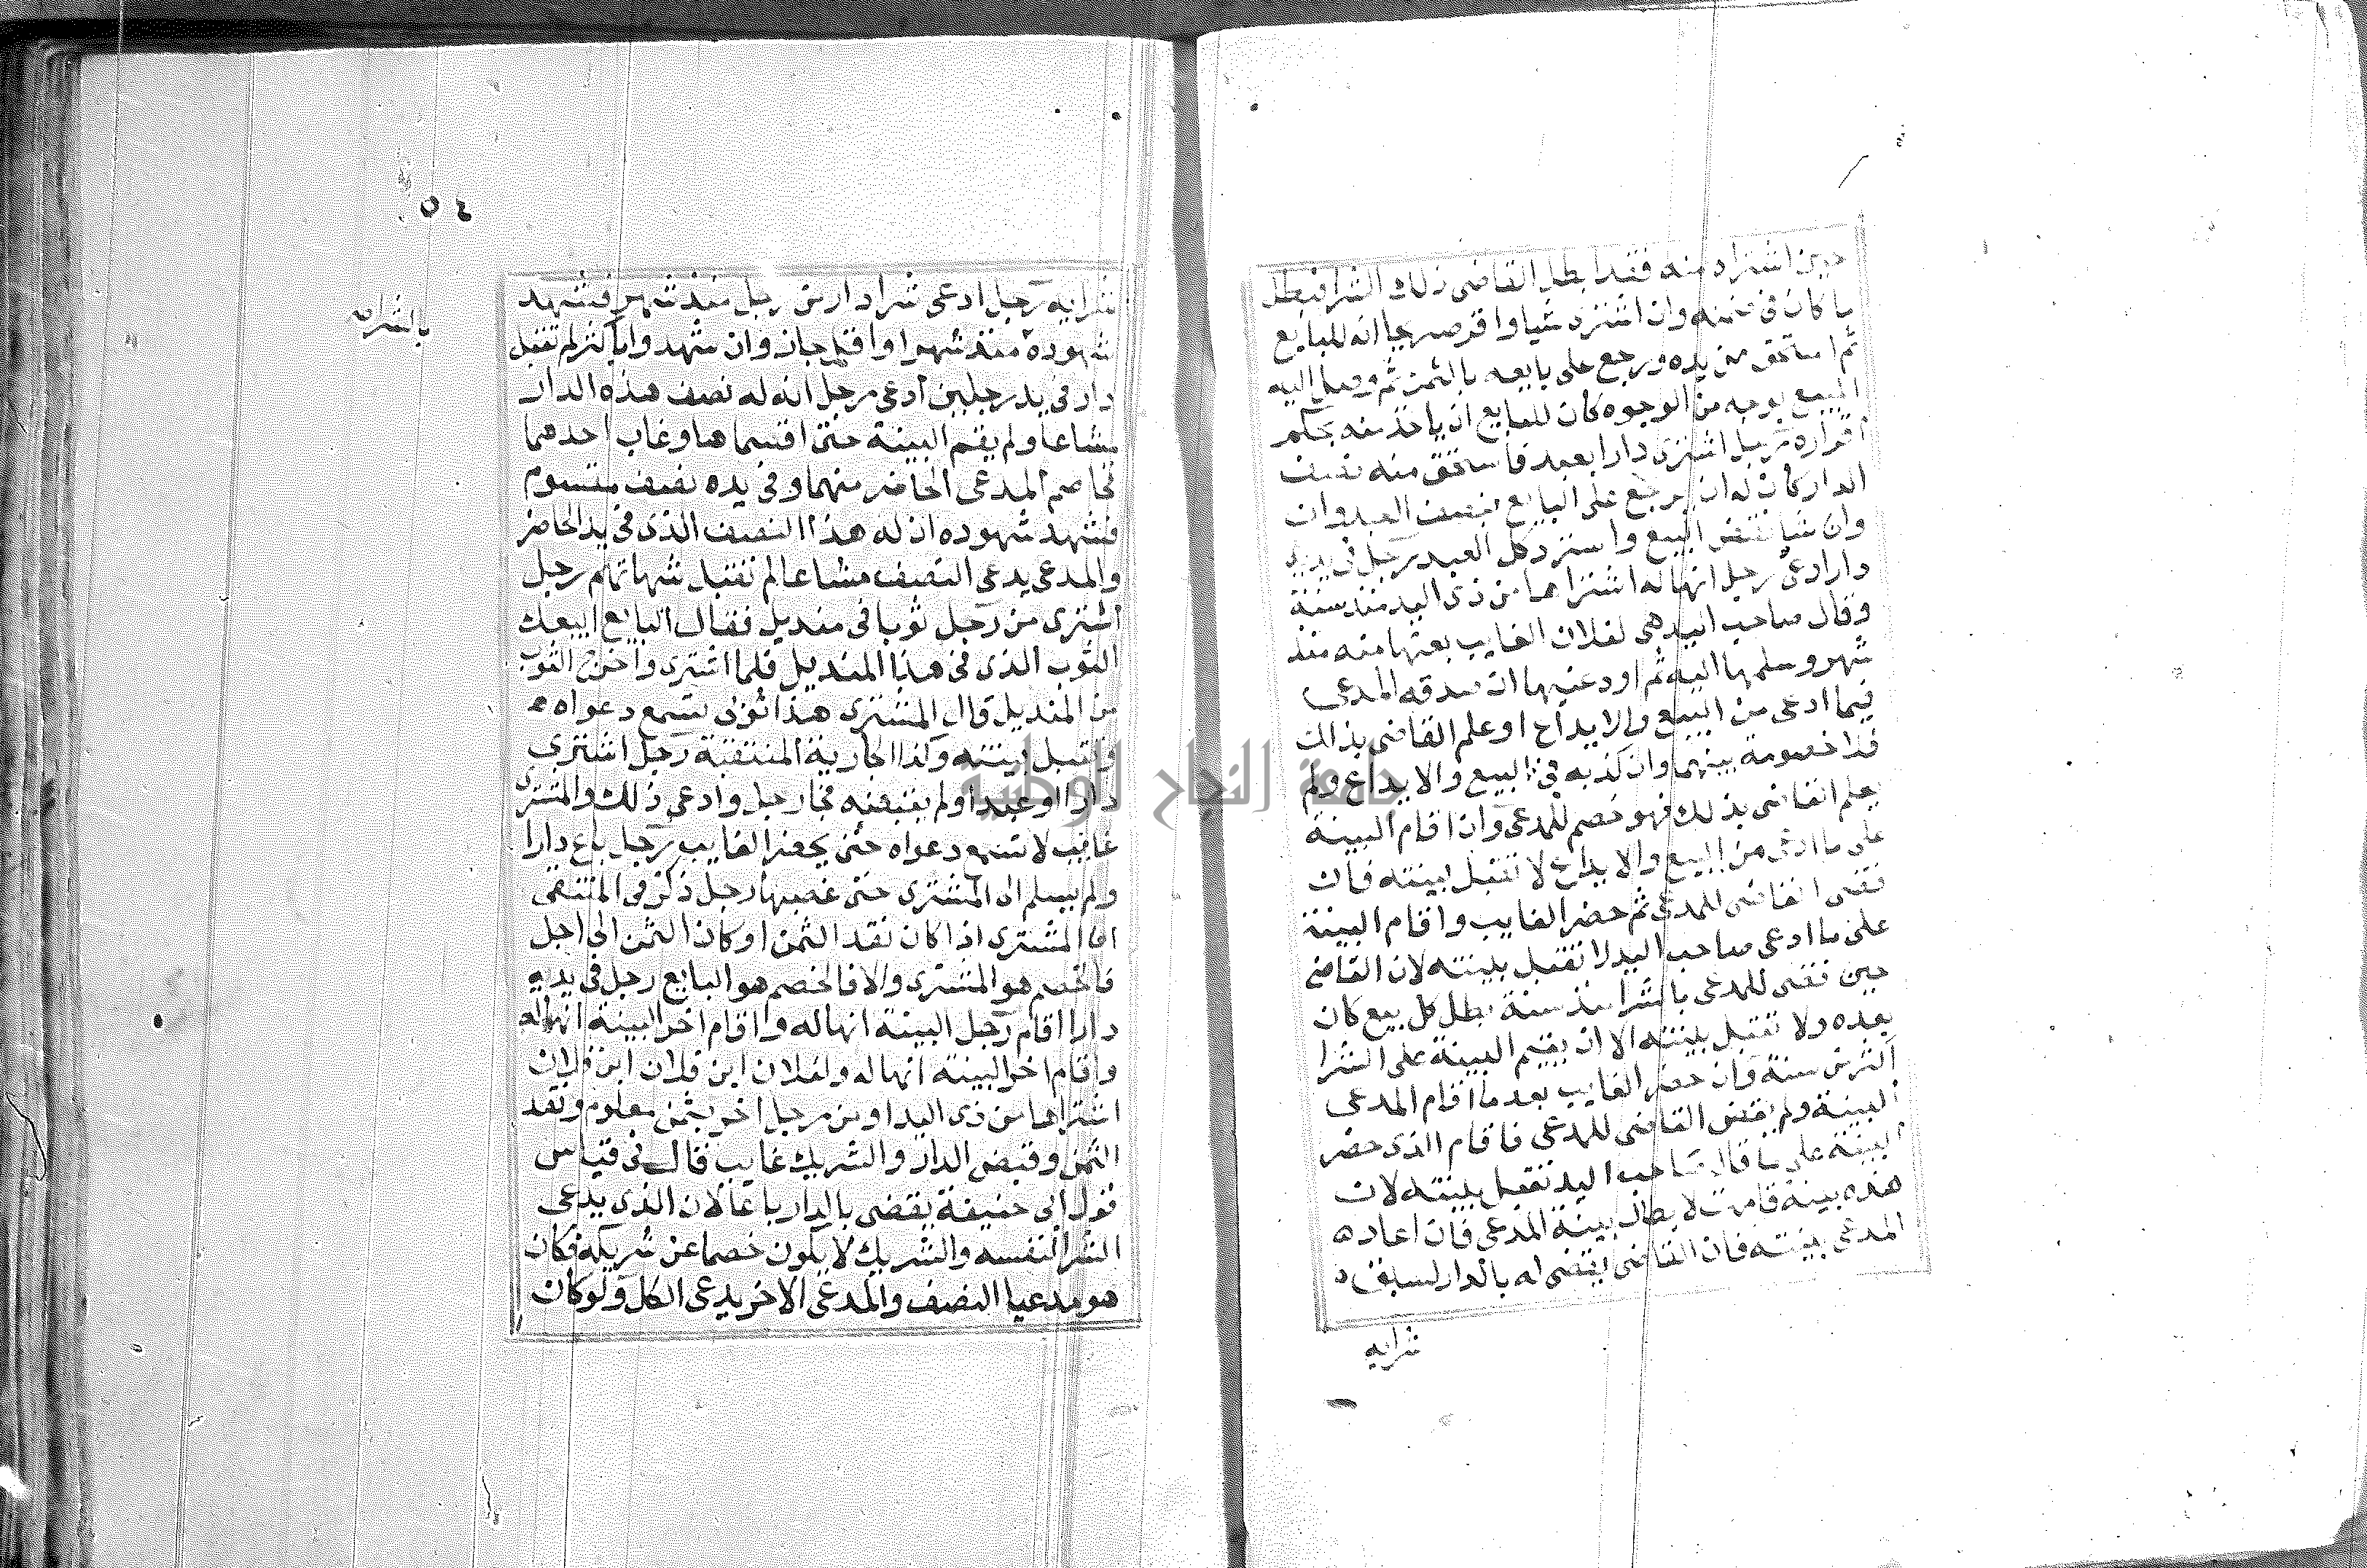 حين اشتراه منه فقد ابطل القاضى ذلك الشرا فبطل
ما كان فى ضمنه وان اشترى شيا واقر صريحا انه للبايع
ثم استحق من يده ورجع على بايعه بالثمن ثم وصل اليه
المبيع بوجه من الوجوه كان للبايع ان ياخذ منه بحكم
اقراره رجل اشترى دارا بعبد فاستحق منه نصف
الدار كان له ان يرجع على البايع بنصف العبد وان
وان شا نقض البيع واسترد كل العبد رجل فى يديه
دار ادعى رجل انها له اشتراها من ذى اليد منذ سنة
وقال صاحب اليد هى لفلان الغايب بعتها منه منذ
شهر وسلمها اليه ثم اودعنيها ان صدقه المدعى
فيما ادعى من البيع والايداع او علم القاضى بذالك
فلا خصومة بينهما وان كذبه فى البيع والايداع ولم
يعلم القاضى بذلك فهو خصم للمدعى وان اقام البينة
على ما ادعى من البيع والايداع لا تقبل بينته فان
قضى القاضى للمدعى ثم حضر الغايب واقام البينة
على ما ادعى صاحب اليد لا تقبل بينته لان القاضى
حين قضى للمدعى بالشرا منذ سنة بطل كل بيع كان
بعده ولا تقبل بينته الا ان يقيم البينة على الشرا
اكثر من سنة وان حضر الغايب بعد ما اقام المدعى
البينة ولم يقض القاضى للمدعى فاقام الذى حضر
البينة على ما قال صاحب اليد تقبل بينته لان
هذه بينة قامت لابطال بينة المدعى فان اعاده
المدعى بينته فان القاضى يقضى له بالدار لسبق
شرايه
٥٤
شرايه رجل ادعى شرا دار من رجل منذ شهر فشهد
شهوده منذ شهر او اقل جاز وان شهدوا باكثر لم تقبل
بالشرا
دار فى يد رجلين ادعى رجل انه له نصف هذه الدار
مشاعا ولم يقم البينة حتى اقتسماها وغاب احدهما
فخاصم المدعى الحاضر منهما وفى يده نصف مقسوم
فشهد شهوده ان له هذا النصف الذى فى يد الحاضر
والمدعى يدعى النصف مشاعا لم تقبل شهاتهم رجل
اشترى من رجل ثوبا فى منديل فقال البايع ابيعك
الثوب الذى فى هذا المنديل فلما اشترى واخرج الثوب
من المنديل قال المشترى هذا ثوبى تسمع دعواه
وتقبل بينته وكذا الجارية المنتقبة رجل اشترى
دارا او عبدا ولم يقبضه فجا رجل وادعى ذلك والمشترى
غايب لا تسمع دعواه حتى يحضر الغايب رجل باع دارا
ولم يسلم الى المشترى حتى غصبها رجل ذكر فى المنتقى
ان المشترى اذا كان نقد الثمن او كان الثمن الى اجل
فالخصم هو المشترى والا فالخصم هو البايع رجل فى يديه
دار اقام رجل البينة انها له واقام اخر البينة انها له
واقام اخر البينة انها له ولفلان ابن فلان ابن فلان
اشتراها من ذى اليد او من رجل اخر بثمن معلوم ونقد
الثمن وقبض الدار والشريك غايب قال فى قياس
قول ابى حنيفة يقضى بالدار باعا لان الذى يدعى
الشرا لنفسه والشريك لا يكون خصما عن شريكه فكان
هو مدعيا النصف والمدعى الاخر يدعى الكل ولو كان
جامعة النجاح الوطنية